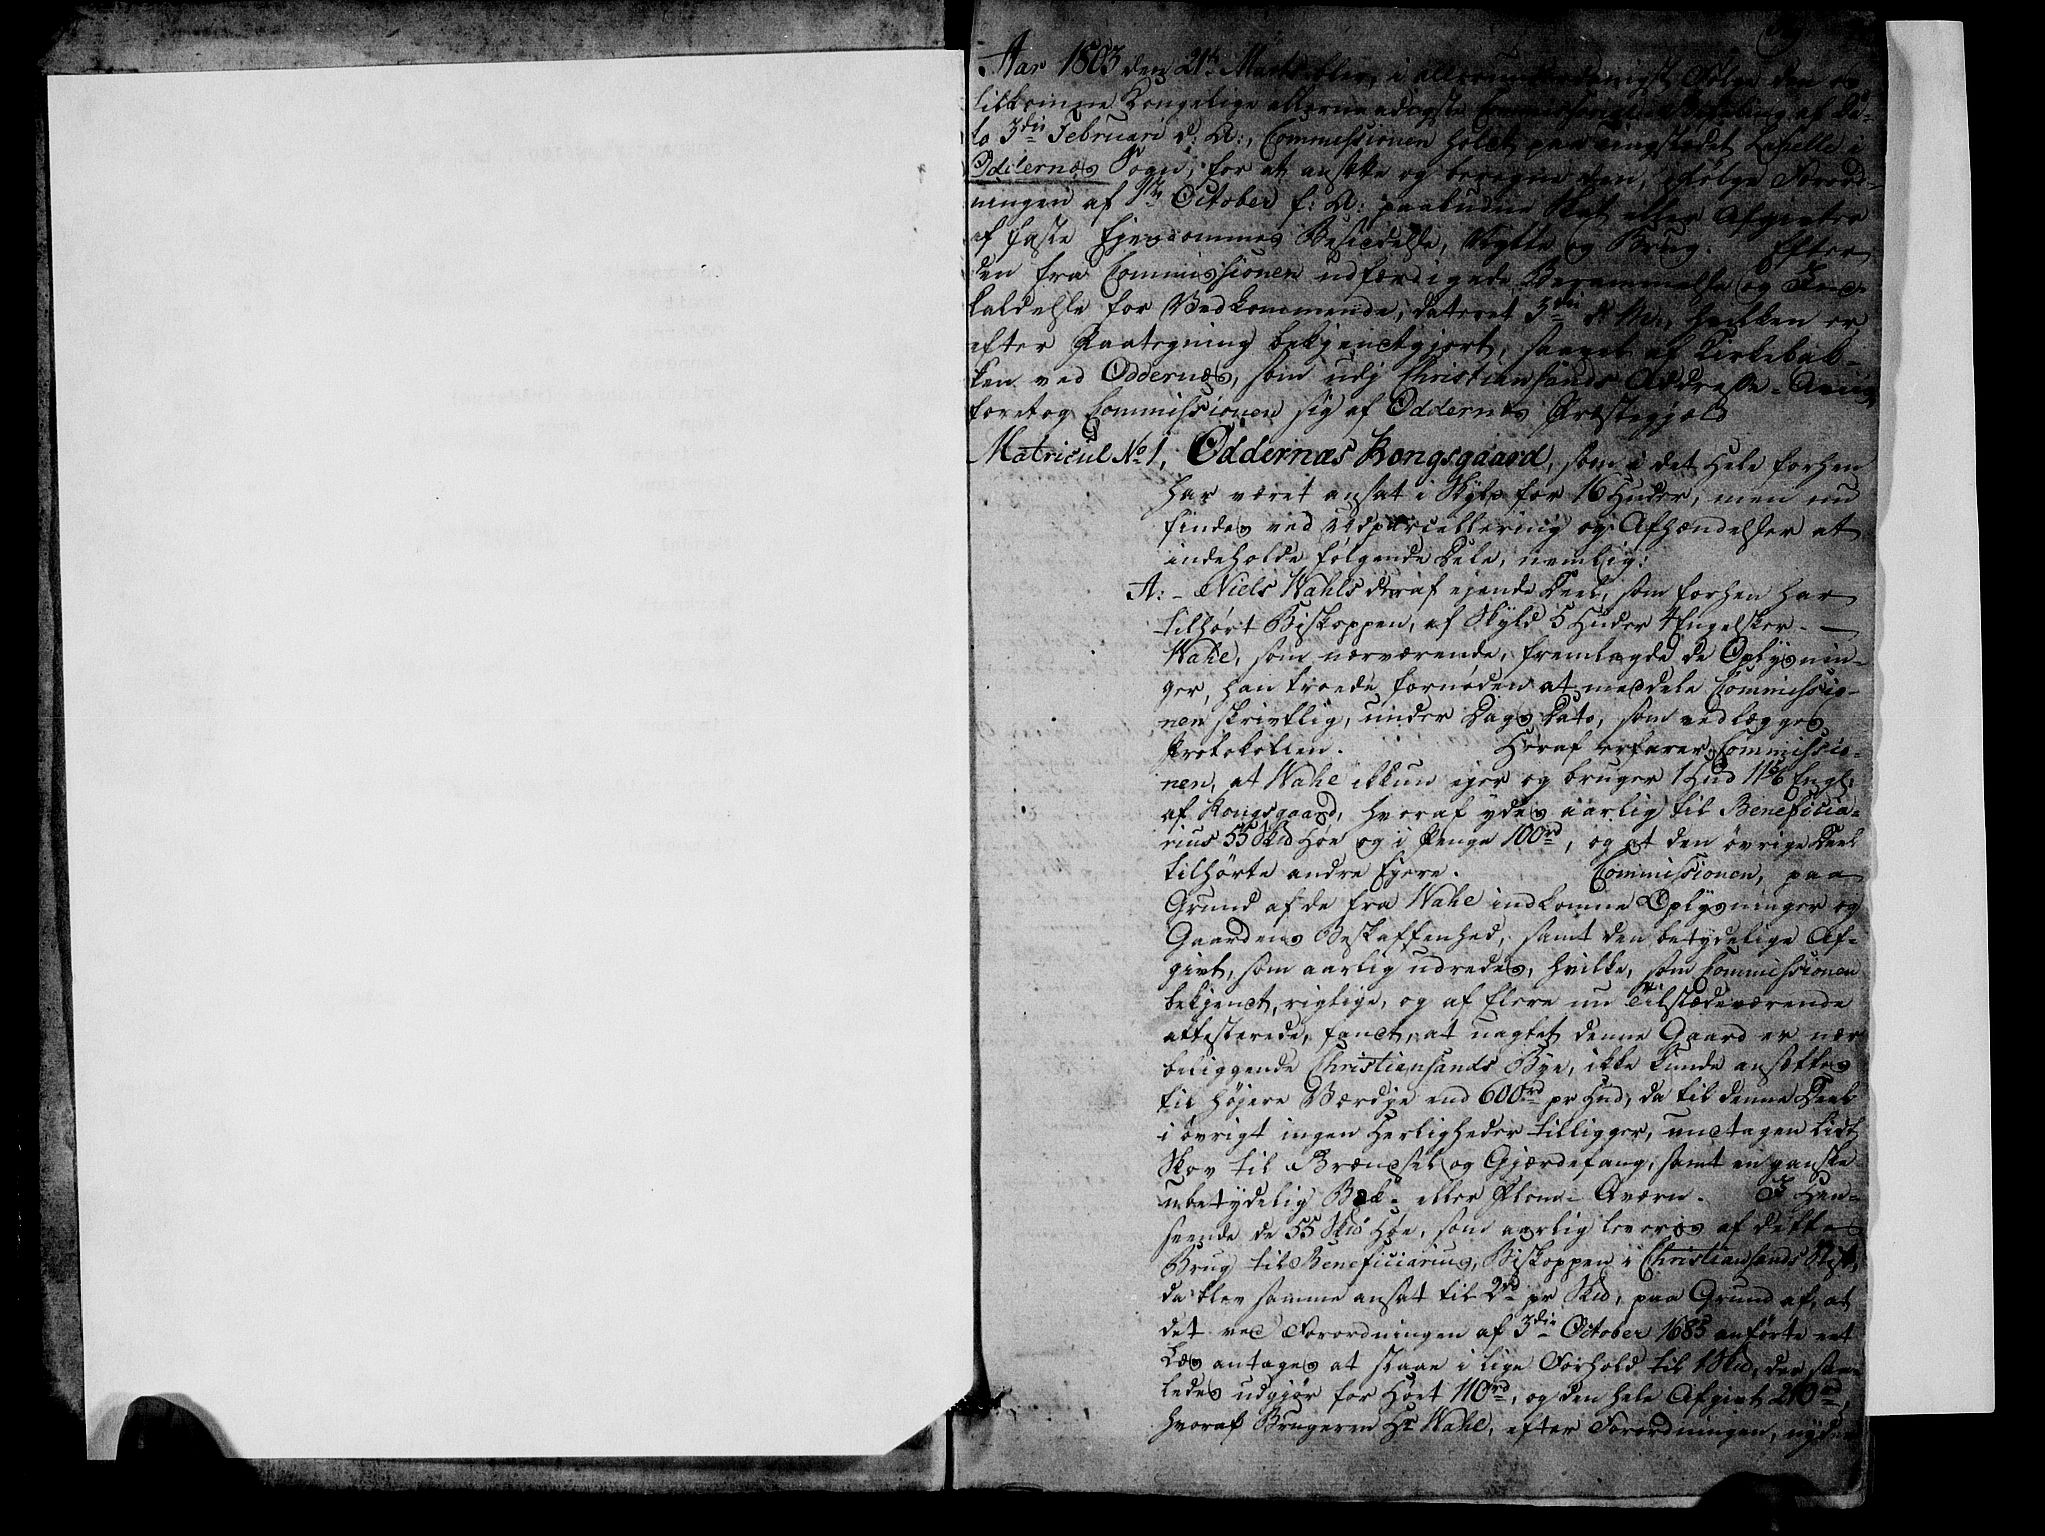 Aar 1803 den 21de Martz blev, i allerunderdanigst Følge den os
tilkomne Kongelige allernaadigste Commissorii Befaling af Da-
to 3die Februari d: A:, Commissionen holdt paa tingstedet Lahelle i
Oddernæs Sogn, for at ansætte og beregne den, ifølge Forord-
ningen af 1te October f: A: paabudne Skat eller Afgivter
af faste Ejendommes Besiddelse, Nytte og Brug. Efter
den fra Commissionen udfærdigede Berammelse og Ind-
kaldelse for Vedkommende, dateret 3die d: M:, hvilken er
efter Paategning bekjendtgjort, saavel af Kirkebak-
ken ved Oddernæs, som udj Christiansands Addresse-Avis,
foretog Commissionen sig af Oddernæs Præstegjæld
Matricul No 1, Oddernæs Kongsgaard, som i det Hele forhen
har været ansat i Skyld for 16 Huder, men nu
findes ved Udparcellering og Afhændelser at
indeholde følgende Dele, nemlig:
A: - Niels Wahls deraf ejende Deel, som forhen har
tilhørt Biskoppen, af Skyld 5 Huder 4 Engelsker. —
Wahl, som nærværende, fremlagde de Oplysnin-
ger, han troede fornøden at meddele Commissio-
nen skrivtlig, under Dags Dato, som vedlægges
Protokollen. Heraf erfarer Commissio-
nen, at Wahl ikkun ejer og bruger 1 Hud 11 5/6 Engl:
af Kongsgaard, hvoraf ydes aarlig til Beneficia-
rius 55 Skd Høe og i Penge 100rd, og at den øvrige Deel
tilhørte andre Ejere. Commissionen, paa
Grund af de fra Wahl indkomne Oplysninger og
Gaardens Beskaffenhed, samt den betydelige Af-
givt, som aarlig udredes, hvilke, som Commissionen
bekjendt, rigtige, og af flere nu Tilstædeværende
attesterede, fandt, at uagtet denne Gaard er nær
beliggende Christiansands Bye, ikke kunde ansættes
til højere Værdie end 600rd pr Hud, da til denne Deel
i øvrigt ingen Herligheder tilligger, undtagen lidt
Skov til Brændsel og Gjærdefang, samt en ganske
ubetydelig Bæk- eller Flom- Qværn. I Hen-
seende de 55 Skd Høe, som aarlig leveres af dette
Brug til Beneficiarius, Biskoppen i Christiansands Stift,
da blev samme ansat til 2rd pr Skd, paa Grund af, at
det ved Forordningen af 3die October 1685 anførte eet
Læs antages at staae i lige Forhold til 1 Skd, der saa-
ledes udgjør for Høet 110rd, og den hele Afgivt 210rd,
hvoraf Brugeren Hr Wahl, efter Forordningen, nyder